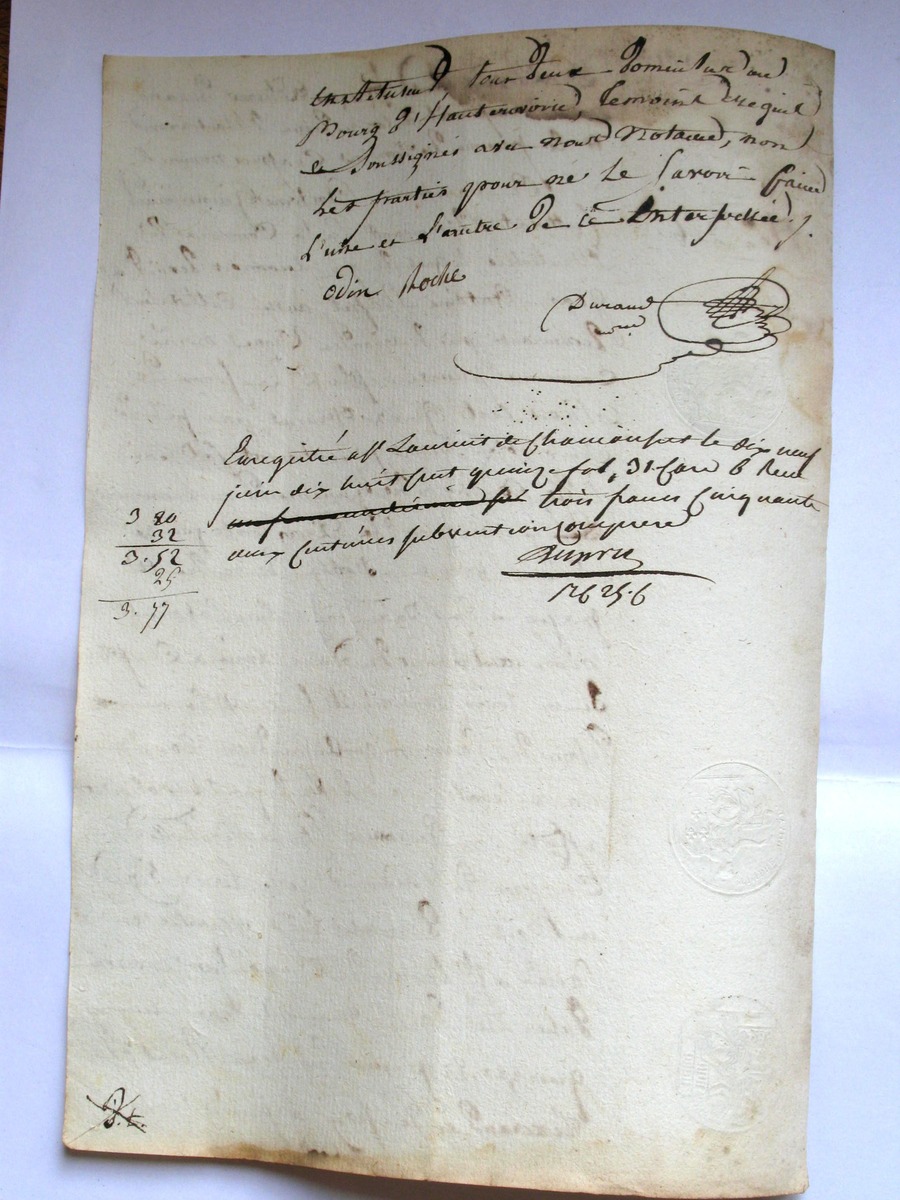 instituteur, tous deux domiciliés au
Bourg d'Hauterivoire, témoins requis
et soussignés avec nous Notaire, non
les parties pour ne le savoir faire
l'une et l'autre de ce Interpellée ./.
Odin Roche
Durand
nre
Enregistré a St Laurent de Chamousset le dix neuf
juin dix huit cent quinze fol. 31. Case 6 Reçu
trois francs cinquante
deux centimes subvention comprise
Dupric
3 20
32
3. 52
25
3. 77